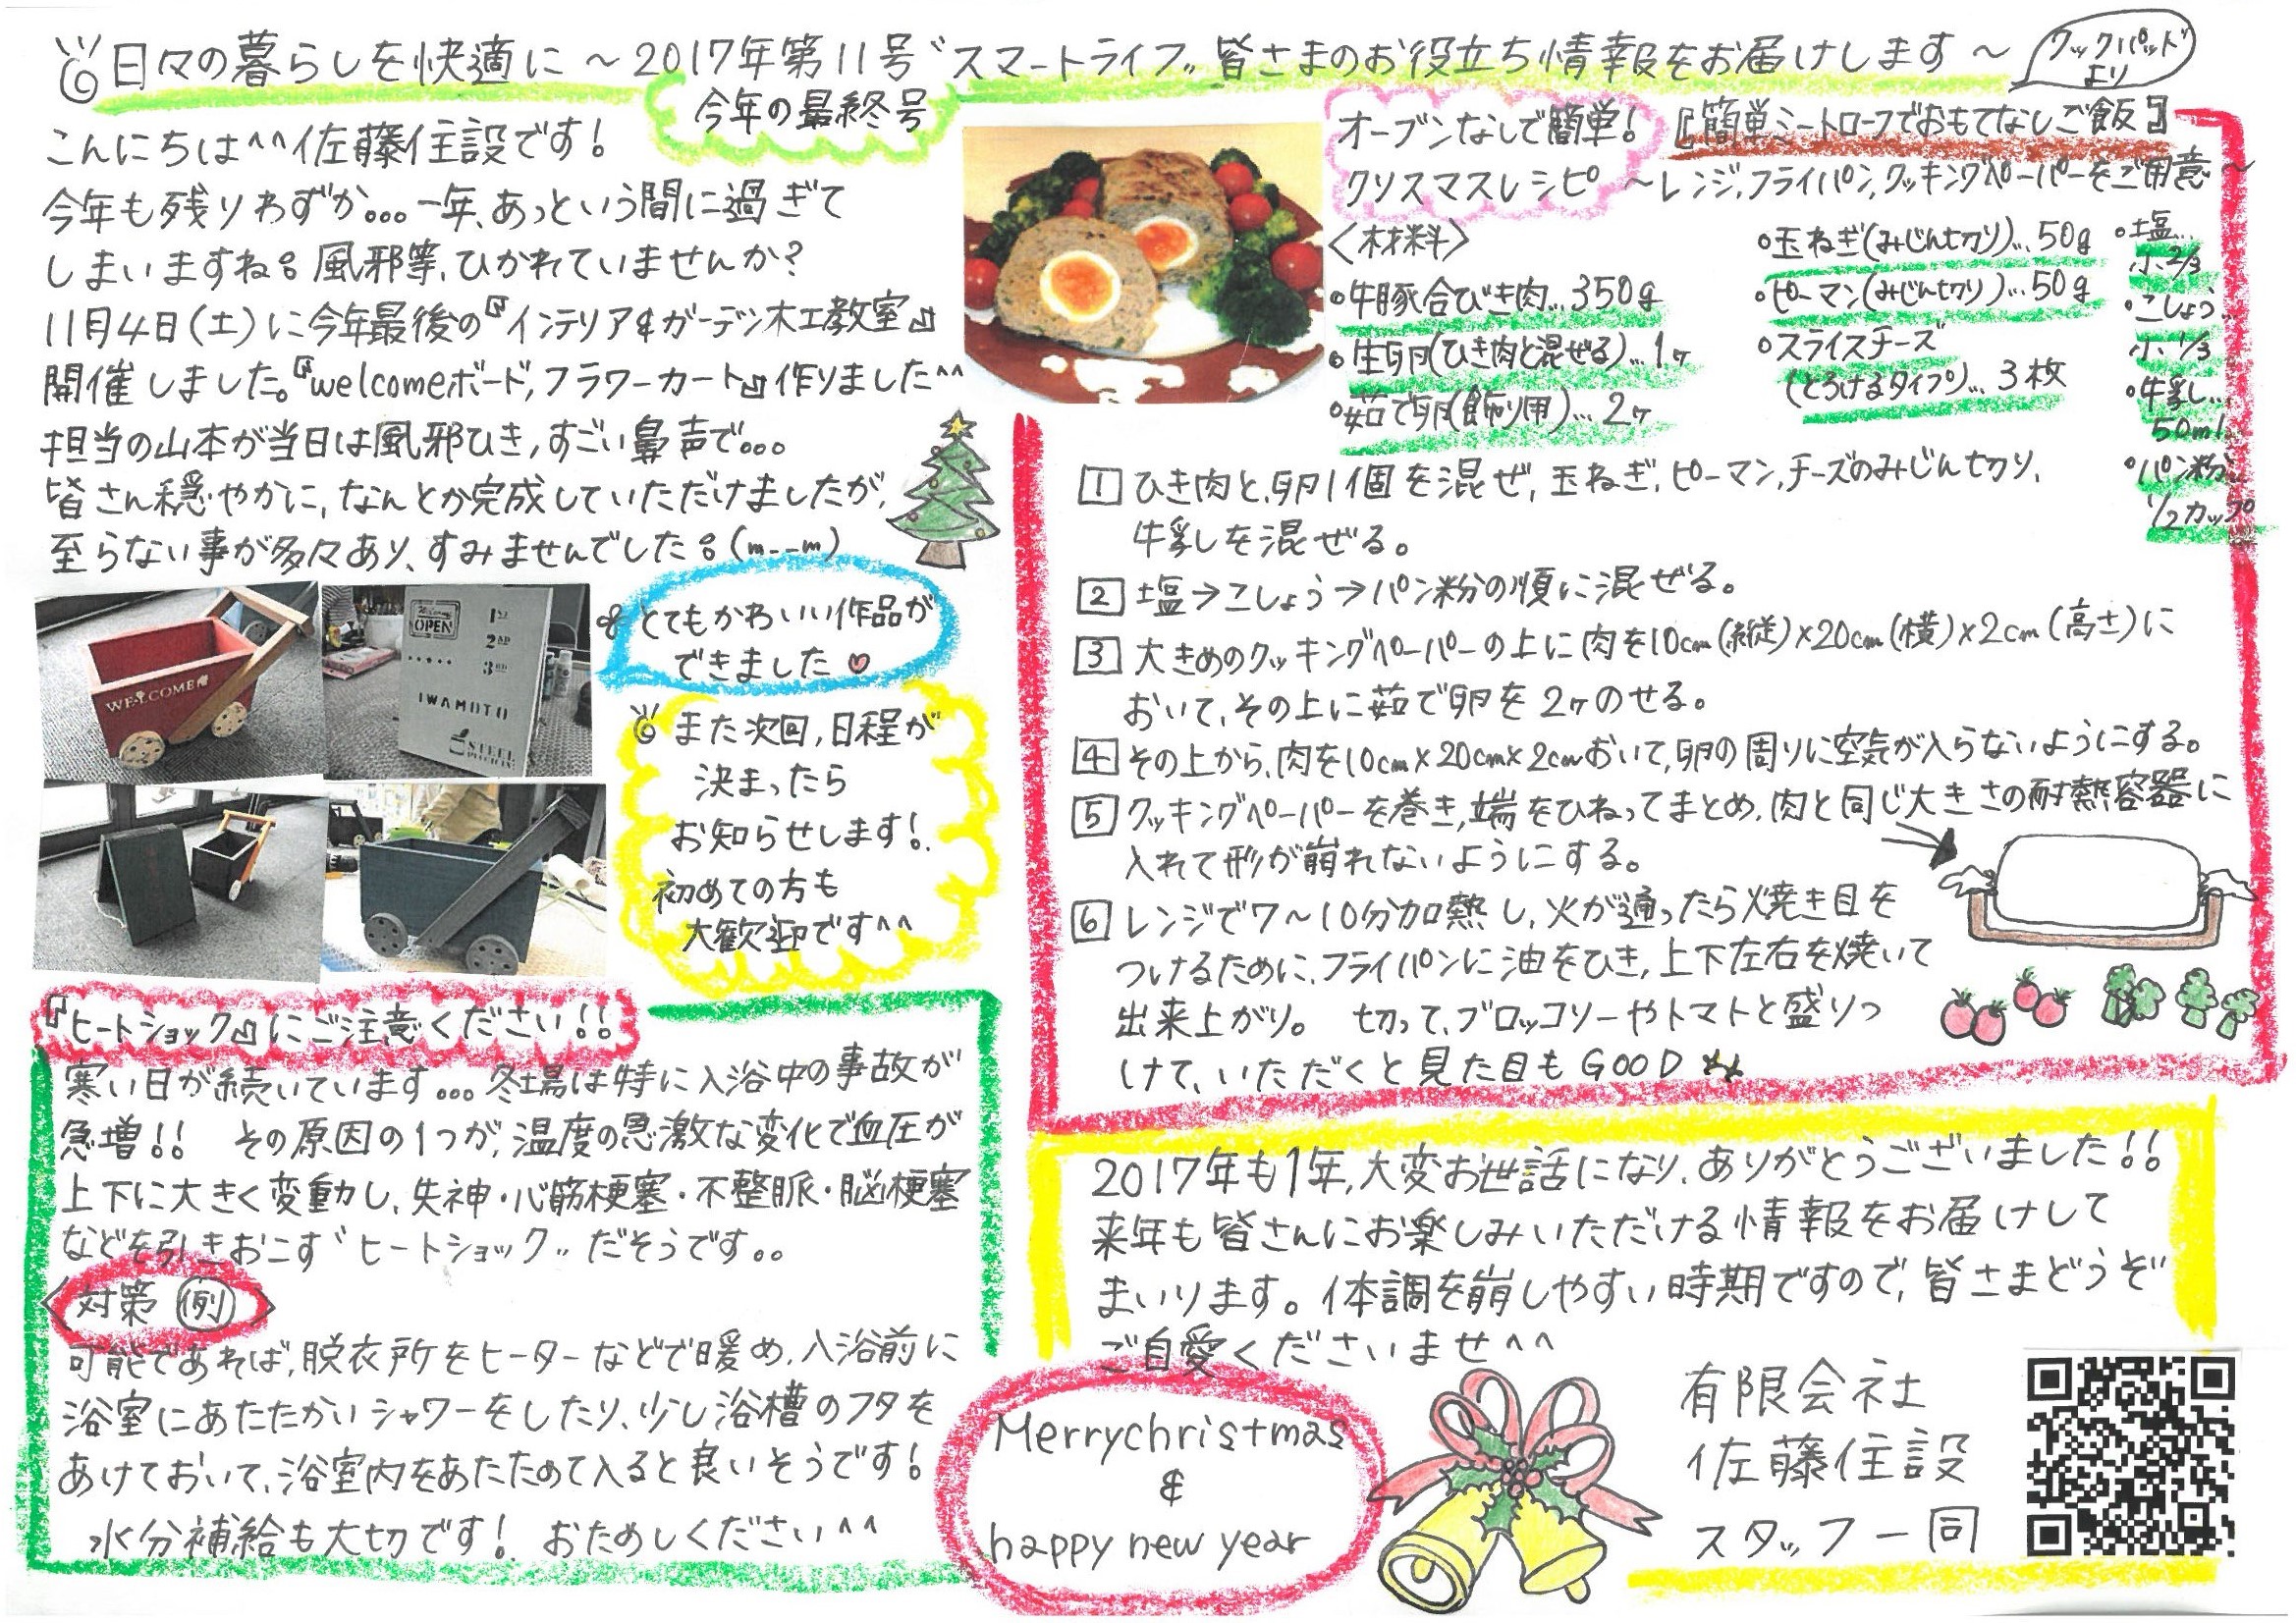 日々の暮らしを快適に〜2017年第11号〝スマートライフ〟皆さまのお役立ち情報をお届けします〜
クックパッド
より
今年の最終号
こんにちは^^佐藤住設です!
今年も残りわずか...一年、あっという間に過ぎて
しまいますね。風邪等、ひかれていませんか?
11月4日(土)に今年最後の『インテリア&ガーデン木工教室』
開催しました。『welcomeボード,フラワーカート』作りました^^
担当の山本が当日は風邪ひき,すごい鼻声で...
皆さん穏やかに、なんとか完成していただけましたが、
至らない事が多々あり、すみませんでした。(m--m)
WELCOME
Welcome
OPEN
1ST
2ND
3RD
IWAMOTO
とてもかわいい作品が
できました♡
また次回,日程が
決まったら
お知らせします!
初めての方も
大歓迎です^^
『ヒートショック』にご注意ください!!
寒い日が続いています...冬場は特に入浴中の事故が
急増!! その原因の1つが、温度の急激な変化で血圧が
上下に大きく変動し、失神・心筋梗塞・不整脈・脳梗塞
などを引きおこす〝ヒートショック〟だそうです。。
〈対策 例〉
可能であれば,脱衣所をヒーターなどで暖め、入浴前に
浴室にあたたかいシャワーをしたり、少し浴槽のフタを
あけておいて、浴室内をあたためて入ると良いそうです!
水分補給も大切です! おためしください^^
オーブンなしで簡単!
クリスマスレシピ
『簡単ミートローフでおもてなしご飯』
〜レンジ,フライパン,クッキングペーパーをご用意〜
〈材料〉
・牛豚合びき肉...350g
・生卵(ひき肉と混ぜる)...1ヶ
・茹で卵(飾り用)...2ヶ
・玉ねぎ(みじん切り)...50g
・ピーマン(みじん切り)...50g
・スライスチーズ
(とろけるタイプ)...3枚
・塩...
小、2/3
・こしょう...
小、1/3
・牛乳...
50ml
・パン粉...
1/2カップ
1 ひき肉と、卵1個を混ぜ,玉ねぎ,ピーマン,チーズのみじん切り、
牛乳を混ぜる。
2 塩→こしょう→パン粉の順に混ぜる。
3 大きめのクッキングペーパーの上に肉を10cm(縦)×20cm(横)×2cm(高さ)に
おいて、その上に茹で卵を2ヶのせる。
4 その上から、肉を10cm×20cm×2cmおいて,卵の周りに空気が入らないようにする。
5 クッキングペーパーを巻き,端をひねってまとめ、肉と同じ大きさの耐熱容器に
入れて形が崩れないようにする。
6 レンジで7〜10分加熱し、火が通ったら焼き目を
つけるために、フライパンに油をひき,上下左右を焼いて
出来上がり。 切って、ブロッコリーやトマトと盛りつ
けて、いただくと見た目もGOOD
2017年も1年,大変お世話になり、ありがとうございました!!
来年も皆さんにお楽しみいただける情報をお届けして
まいります。体調を崩しやすい時期ですので、皆さまどうぞ
ご自愛くださいませ^^
Merrychristmas
&
happy new year
有限会社
佐藤住設
スタッフ一同